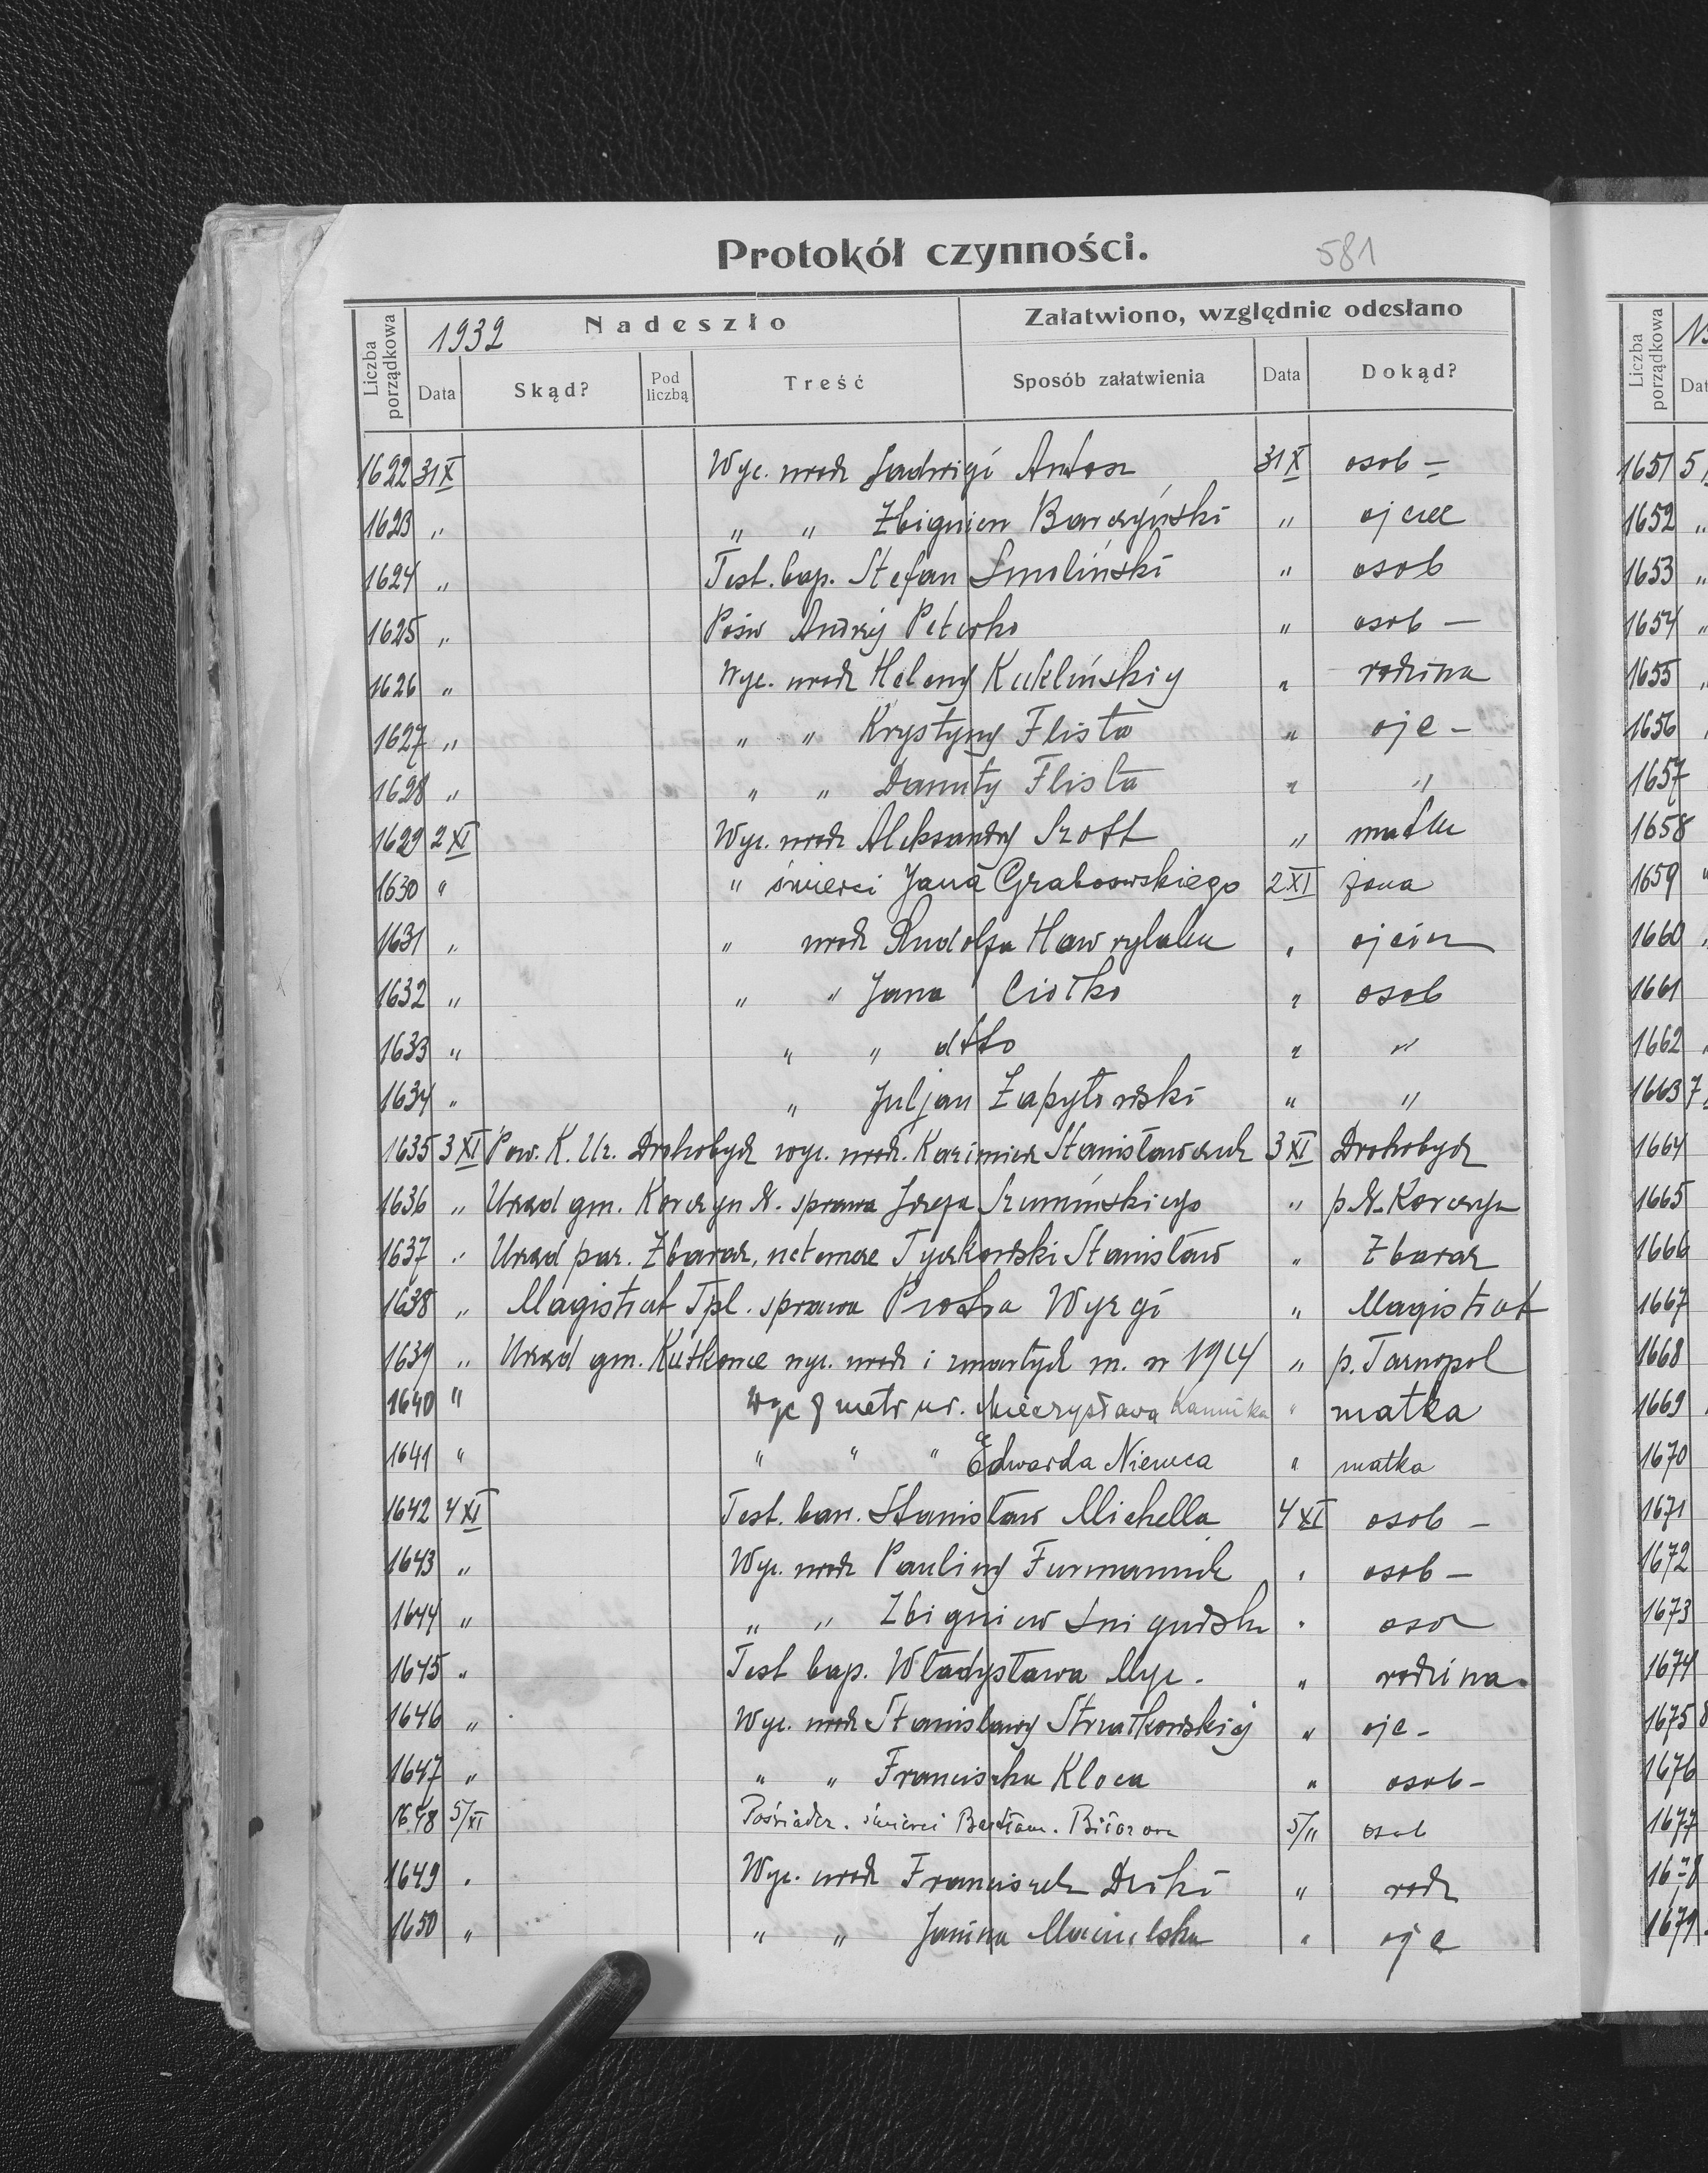 Protokół czynności. 581
Liczba porządkowa
1932 Nadeszło
Załatwiono, względnie odesłano
Data Skąd? Pod liczbą Treść Sposób załatwienia Data Dokąd?
1622 31 X Wyc. urodz Jadwigi Antosz 31 X osob —
1623 „ „ „ Zbigniew Barczyński „ ojciec
1624 „ Test. bap. Stefan Smoliński „ osob
1625 „ Pośw Andrzej Peterko „ osob —
1626 „ Wyc. urodz Heleny Kuklińskiej „ rodzina
1627 „ „ „ Krystyny Flista „ ojc —
1628 „ „ „ Danuty Flista „ „
1629 2 XI Wyc. urodz Aleksandry Szott „ matka
1630 „ „ śmierci Jana Grabowskiego 2 XI żona
1631 „ „ urodz Rudolfa Hawrylaka „
1632 „ „ „ Jana Ciołko „ osob
1633 „ „ „ dtto „ „
1634 „ „ Juljan Zapytowski „ „
1635 3 XI Pow. K. Uz. Drohobycz wyc. urodz. Kazimierz Stanisławczuk 3 XI Drohobycz
1636 „ Urząd gm. Korczyn N. sprawa Józefa Szumińskiego „ p. N. Korczyn
1637 „ Urząd par. Zbaraż, Tyczkowski Stanisław „ Zbaraż
1638 „ Magistrat Tpl. sprawa Piotra Wyzgi „ Magistrat
1639 „ Urząd gm. Kutkowce wyc. urodz i zmartych m. w 1914 „ p. Tarnopol
1640 „ Wyc z metr ur. Mieczysława Kannika „ matka
1641 „ „ „ „ Edwarda Niemca „ matka
1642 4 XI Test. bap. Stanisław Michella 4 XI osob —
1643 „ Wyc. urodz Pauliny Furmaniuk „ osob —
1644 „ „ „ Zbigniew „
1645 „ Test bap. Władysława Myc. „ rodzina
1646 „ Wyc. urodz Stanisławy Strutkowskiej „ ojc —
1647 „ „ „ Franciszka Kloca „ osob —
1648 5/XI Poświadcz. śmierci Bartłom. 5/11 osob
1649 „ Wyc. urodz Franciszek „ rodz
1650 „ „ „ Janina „ ojc
Liczba porządkowa
1651 5
1652 „
1653 „
1654 „
1655 „
1656
1657
1658
1659 „
1660 „
1661
1662
1663 7
1664
1665
1666
1667
1668
1669
1670
1671
1672
1673
1674
1675 8
1676
1677
1678
1679